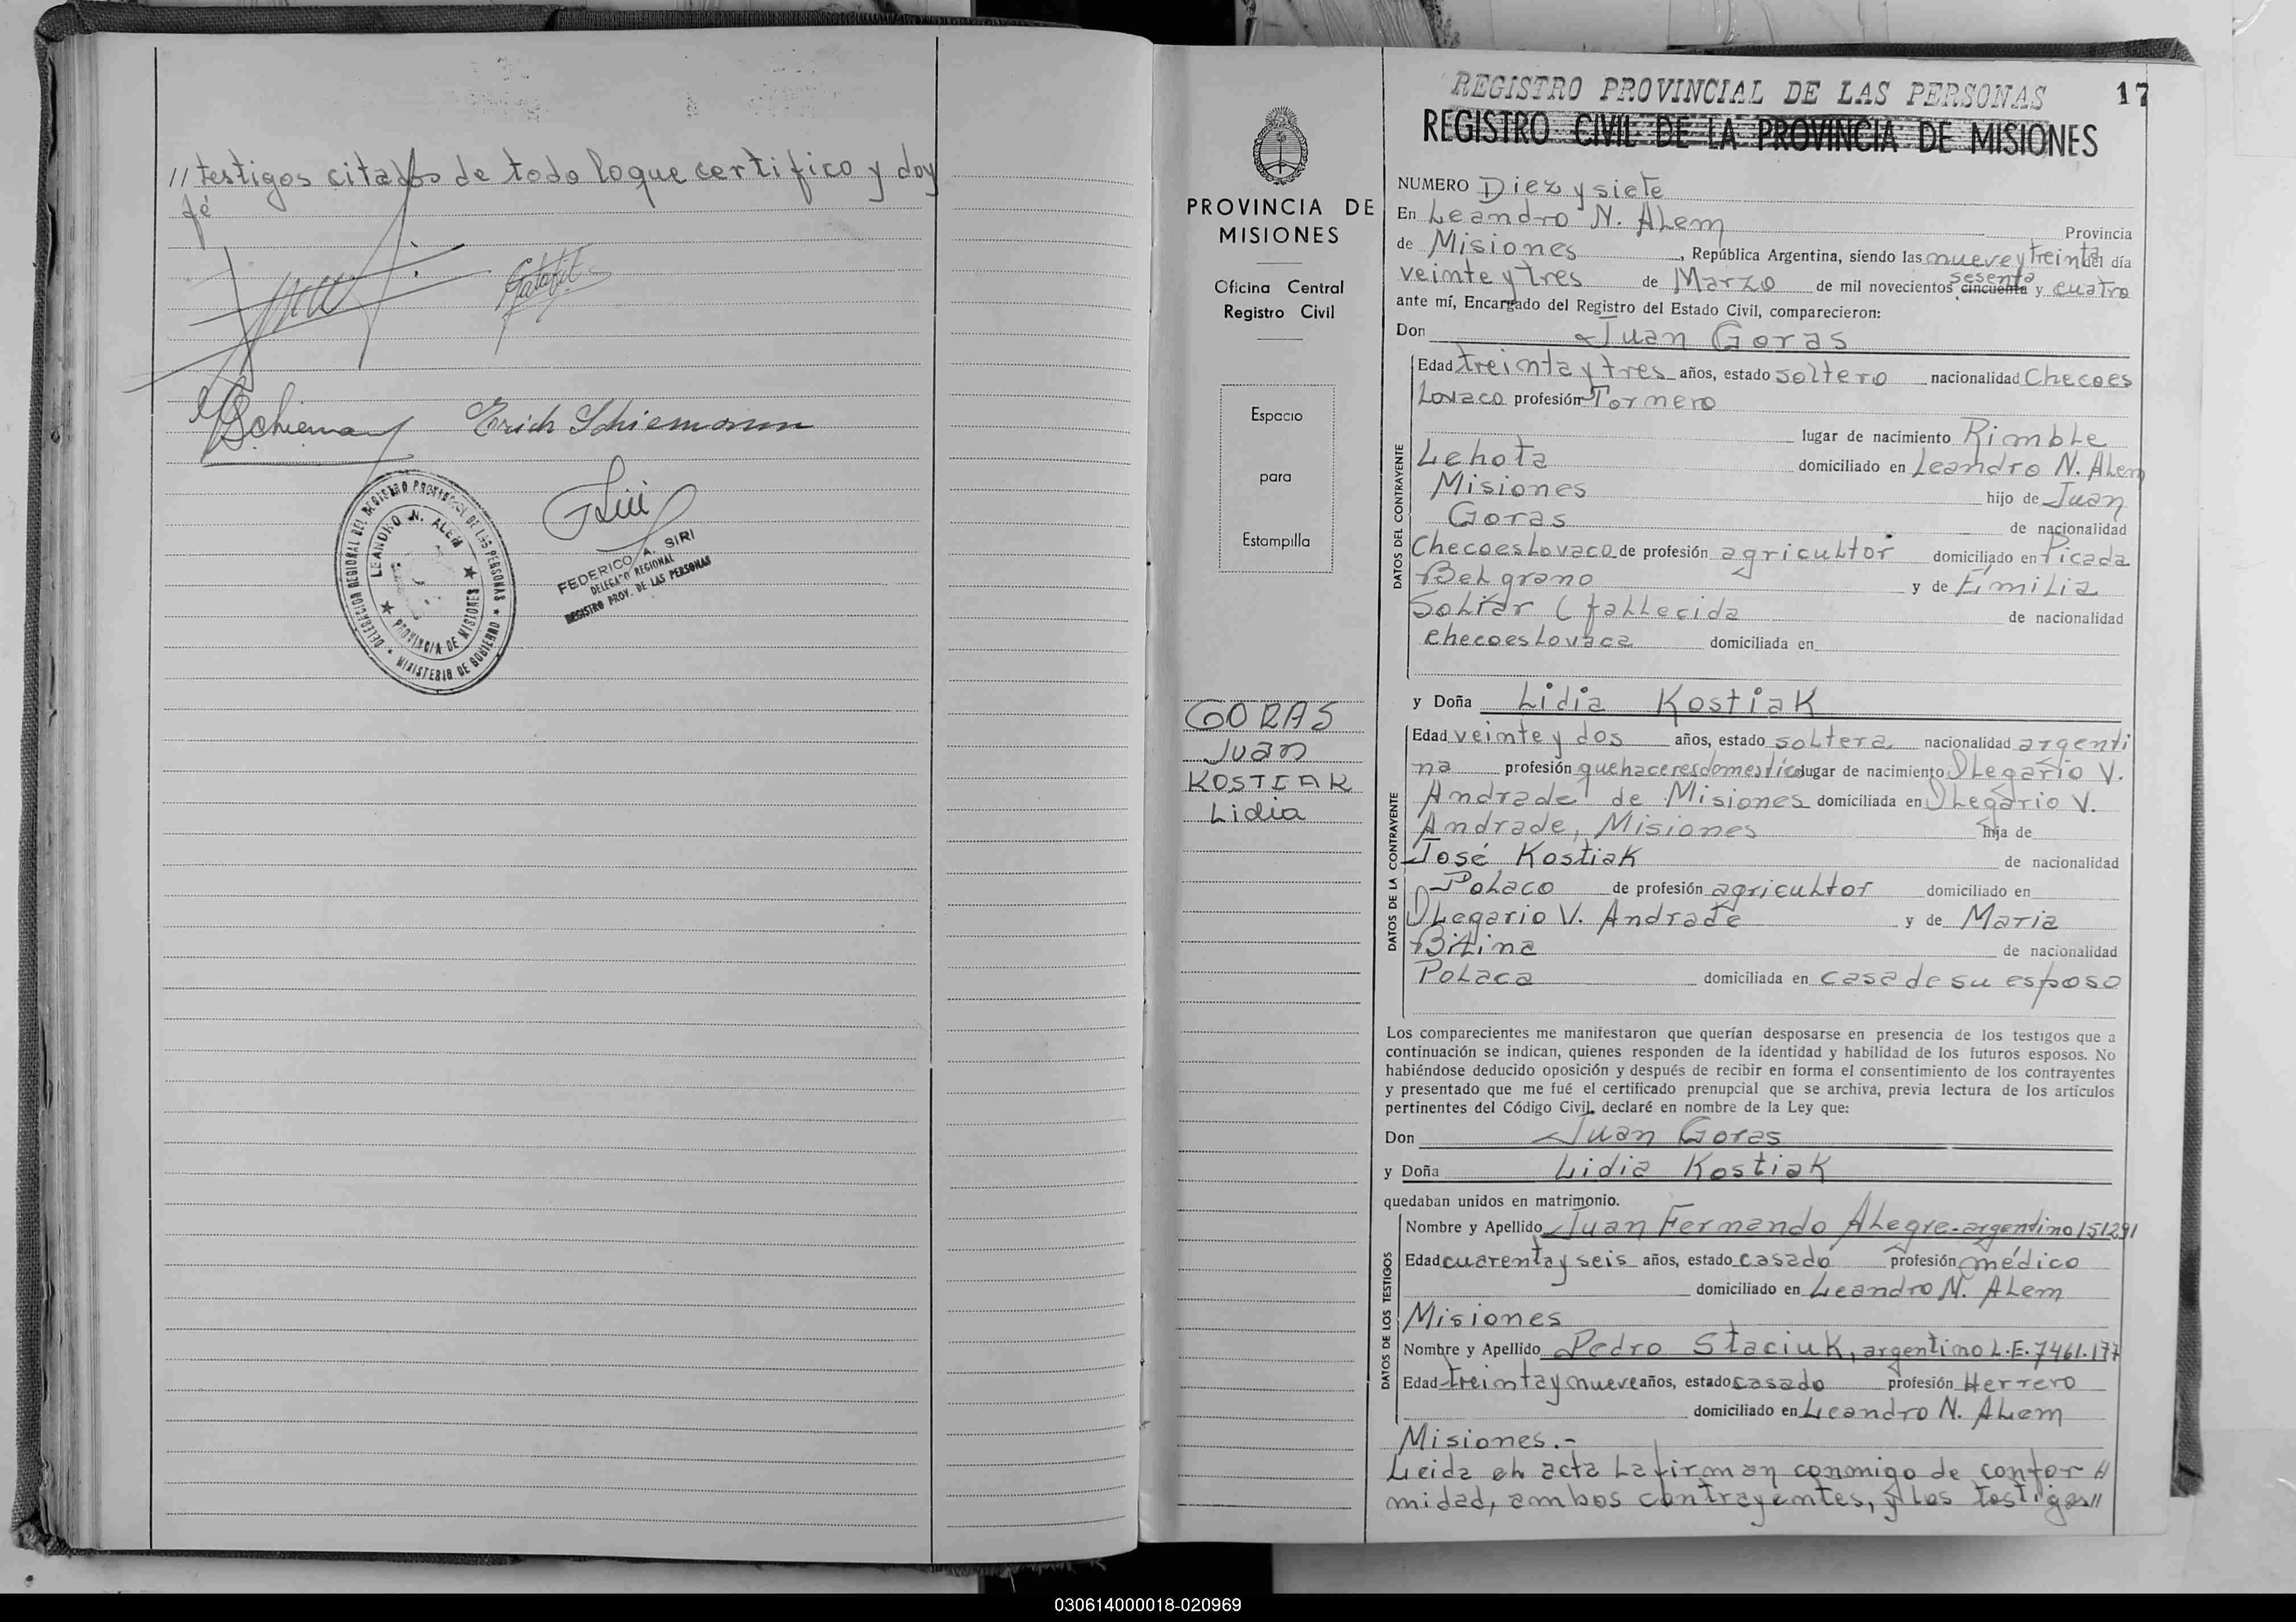 // testigos citados de todo lo que certifico y doy
fé
Erich Schiemann
DELEGACION REGIONAL DEL REGISTRO PROVINCIAL DE LAS PERSONAS
MINISTERIO DE GOBIERNO
LEANDRO N. ALEM
PROVINCIA DE MISIONES
FEDERICO A. SIRI
DELEGADO REGIONAL
REGISTRO PROV. DE LAS PERSONAS
PROVINCIA DE
MISIONES
Oficina Central
Registro Civil
Espacio
para
Estampilla
GORAS
Juan
KOSTIAK
Lidia
REGISTRO PROVINCIAL DE LAS PERSONAS 17
REGISTRO CIVIL DE LA PROVINCIA DE MISIONES
NUMERO Diez y siete
En Leandro N. Alem Provincia
de Misiones, República Argentina, siendo las nueve y treinta del día
veinte y tres de Marzo de mil novecientos cincuenta sesenta y cuatro
ante mí, Encargado del Registro del Estado Civil, comparecieron:
Don Juan Goras
Edad treinta y tres años, estado soltero nacionalidad Checoes
Lovaco profesión Tornero
lugar de nacimiento Rimble
Lehota domiciliado en Leandro N. Alem
Misiones hijo de Juan
Goras de nacionalidad
Checoeslovaco de profesión agricultor domiciliado en Picada
Belgrano y de Emilia
(fallecida de nacionalidad
checoeslovaca domiciliada en
DATOS DEL CONTRAYENTE
y Doña Lidia Kostiak
Edad veinte y dos años, estado soltera nacionalidad argenti
na profesión quehaceres domestico lugar de nacimiento Olegario V.
Andrade de Misiones domiciliada en Olegario V.
Andrade, Misiones hija de
José Kostiak de nacionalidad
Polaco de profesión agricultor domiciliado en
Olegario V. Andrade y de Maria
de nacionalidad
Polaca domiciliada en casa de su esposo
DATOS DE LA CONTRAYENTE
Los comparecientes me manifestaron que querían desposarse en presencia de los testigos que a
continuación se indican, quienes responden de la identidad y habilidad de los futuros esposos. No
habiéndose deducido oposición y después de recibir en forma el consentimiento de los contrayentes
y presentado que me fué el certificado prenupcial que se archiva, previa lectura de los artículos
pertinentes del Código Civil, declaré en nombre de la Ley que:
Don Juan Goras
y Doña Lidia Kostiak
quedaban unidos en matrimonio.
Nombre y Apellido Juan Fernando Alegre - argentino 151291
Edad cuarenta y seis años, estado casado profesión médico
domiciliado en Leandro N. Alem
Misiones
Nombre y Apellido Pedro Staciuk, argentino L.E. 7461.177
Edad treinta y nueve años, estado casado profesión Herrero
domiciliado en Leandro N. Alem
Misiones.-
DATOS DE LOS TESTIGOS
Leida el acta la firman conmigo de confor //
midad, ambos contrayentes, y los testigos //
030614000018-020969